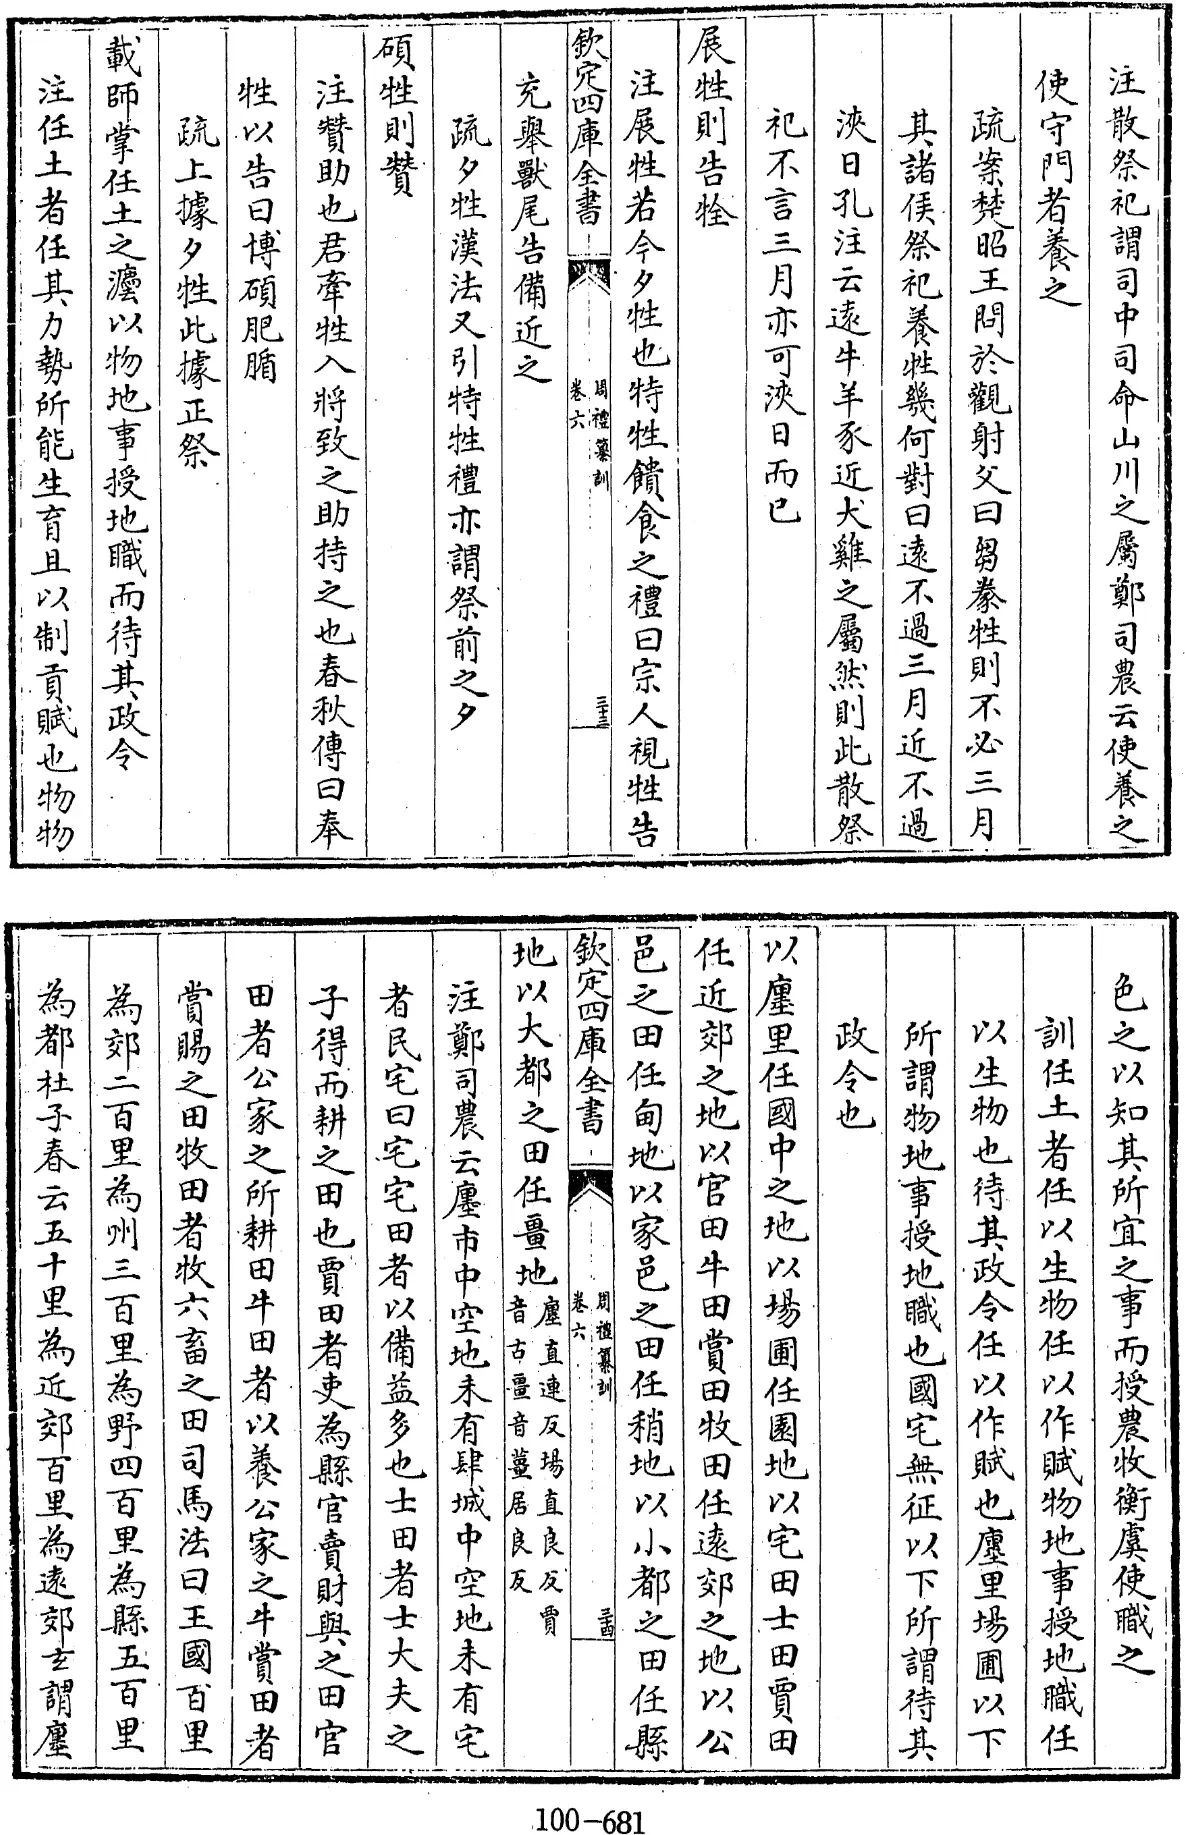 注散祭祀謂司中司命山川之屬鄭司農云使養之
使守門者養之
疏案楚昭王問於觀射父曰芻豢牲則不必三月
其諸侯祭祀養牲幾何對曰遠不過三月近不過
浹日孔注云遠牛羊豕近犬雞之屬然則此散祭
祀不言三月亦可浹日而已
展牲則告牷
注展牲若今夕牲也特牲饋食之禮曰宗人視牲告
欽定四庫全書
周禮纂訓
卷六
三十三
充舉獸尾告備近之
疏夕牲漢法又引特牲禮亦謂祭前之夕
碩牲則贊
注贊助也君牽牲入將致之助持之也春秋傳曰奉
牲以告曰博碩肥腯
疏上據夕牲此據正祭
載師掌任土之灋以物地事授地職而待其政令
注任土者任其力勢所能生育且以制貢賦也物物
色之以知其所宜之事而授農牧衡虞使職之
訓任土者任以生物任以作賦物地事授地職任
以生物也待其政令任以作賦也廛里場圃以下
所謂物地事授地職也國宅無征以下所謂待其
政令也
以廛里任國中之地以場圃任園地以宅田士田賈田
任近郊之地以官田牛田賞田牧田任遠郊之地以公
邑之田任甸地以家邑之田任稍地以小都之田任縣
欽定四庫全書
周禮纂訓
卷六
三十四
地以大都之田任畺地廛直連反場直良反賈
音古畺音薑居良反
注鄭司農云廛市中空地未有肆城中空地未有宅
者民宅曰宅宅田者以備益多也士田者士大夫之
子得而耕之田也賈田者吏為縣官賣財與之田官
田者公家之所耕田牛田者以養公家之牛賞田者
賞賜之田牧田者牧六畜之田司馬法曰王國百里
為郊二百里為州三百里為野四百里為縣五百里
為都杜子春云五十里為近郊百里為遠郊玄謂廛
100-681